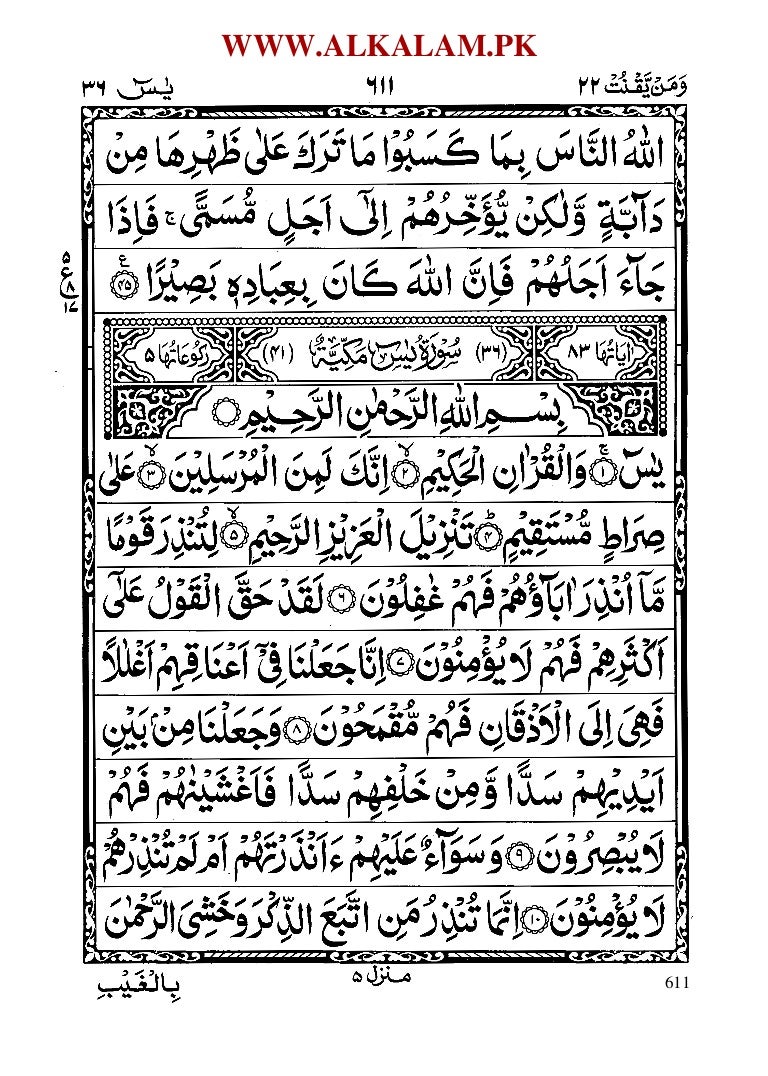 WWW.ALKALAM.PK
وَمَنْ يَّقْنُتْ ٢٢ ٦١١ يٰسٓ ٣٦
اللّٰهُ النَّاسَ بِمَا كَسَبُوْا مَا تَرَكَ عَلٰى ظَهْرِهَا مِنْ
دَآبَّةٍ وَّلٰكِنْ يُّؤَخِّرُهُمْ اِلٰٓى اَجَلٍ مُّسَمًّى ۚ فَاِذَا
جَآءَ اَجَلُهُمْ فَاِنَّ اللّٰهَ كَانَ بِعِبَادِهٖ بَصِيْرًا ﴿٤٥﴾ ع
٥ ع ٨ ١٧
اٰيَاتُهَا ٨٣ (٣٦) سُوْرَةُ يٰسٓ مَكِّيَّةٌ (٤١) رُكُوْعَاتُهَا ٥
بِسْمِ اللّٰهِ الرَّحْمٰنِ الرَّحِيْمِ
يٰسٓ ﴿١﴾ۚ وَالْقُرْاٰنِ الْحَكِيْمِ ﴿٢﴾ۙ اِنَّكَ لَمِنَ الْمُرْسَلِيْنَ ﴿٣﴾ۙ عَلٰى
صِرَاطٍ مُّسْتَقِيْمٍ ﴿٤﴾ؕ تَنْزِيْلَ الْعَزِيْزِ الرَّحِيْمِ ﴿٥﴾ۙ لِتُنْذِرَ قَوْمًا
مَّآ اُنْذِرَ اٰبَآؤُهُمْ فَهُمْ غٰفِلُوْنَ ﴿٦﴾ لَقَدْ حَقَّ الْقَوْلُ عَلٰٓى
اَكْثَرِهِمْ فَهُمْ لَا يُؤْمِنُوْنَ ﴿٧﴾ اِنَّا جَعَلْنَا فِىْٓ اَعْنَاقِهِمْ اَغْلٰلًا
فَهِىَ اِلَى الْاَذْقَانِ فَهُمْ مُّقْمَحُوْنَ ﴿٨﴾ وَجَعَلْنَا مِنْۢ بَيْنِ
اَيْدِيْهِمْ سَدًّا وَّمِنْ خَلْفِهِمْ سَدًّا فَاَغْشَيْنٰهُمْ فَهُمْ
لَا يُبْصِرُوْنَ ﴿٩﴾ وَسَوَآءٌ عَلَيْهِمْ ءَاَنْذَرْتَهُمْ اَمْ لَمْ تُنْذِرْهُمْ
لَا يُؤْمِنُوْنَ ﴿١٠﴾ اِنَّمَا تُنْذِرُ مَنِ اتَّبَعَ الذِّكْرَ وَخَشِىَ الرَّحْمٰنَ
منزل ٥
بِالْغَيْبِ
611